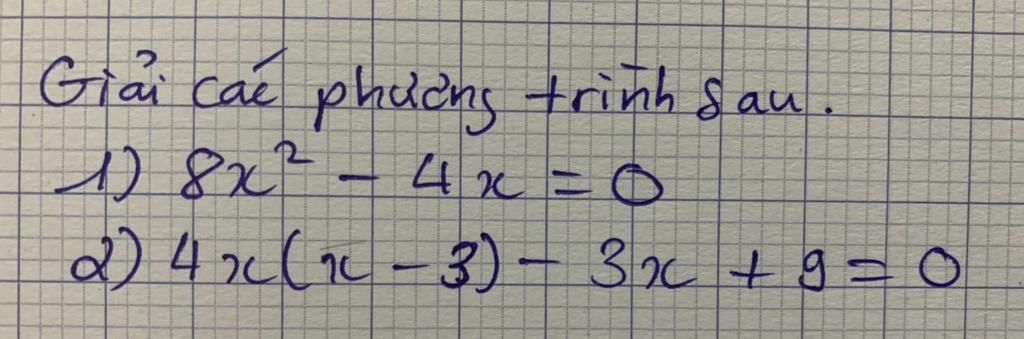 Giải các phương trình sau.
1) 8x² - 4x = 0
2) 4x(x - 3) - 3x + 9 = 0